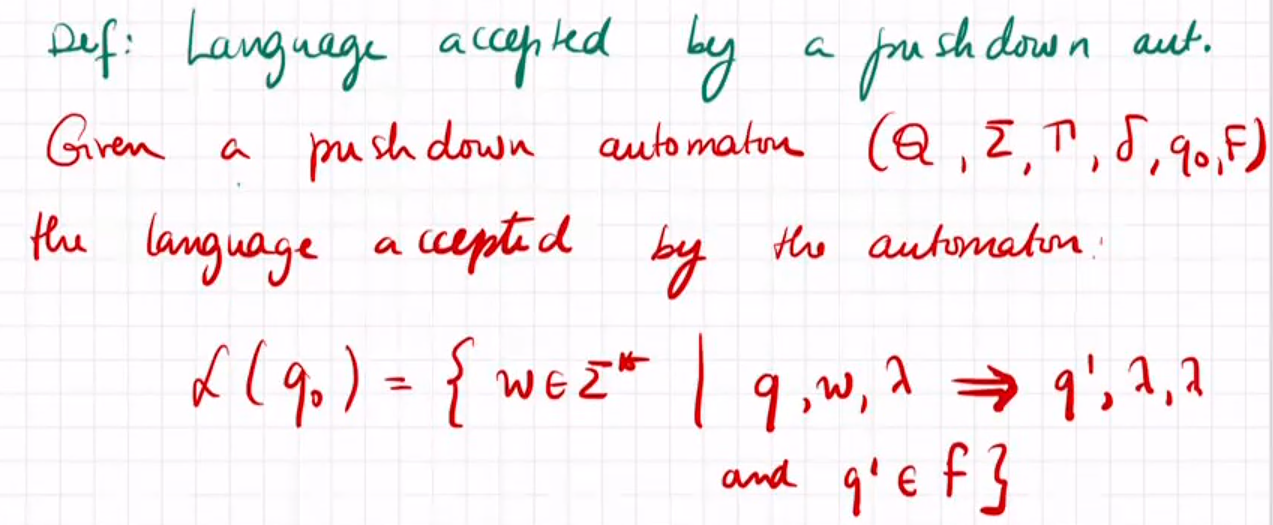 Def: Language accepted by a pushdown aut.
Given a pushdown automaton (Q, Σ, Γ, δ, q₀, F)
the language accepted by the automaton:
L(q₀) = { w ∈ Σ* | q, w, λ ⇒ q', λ, λ
and q' ∈ F }